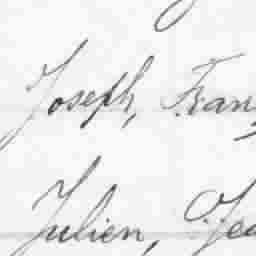 Joseph, Fran
Julien, Jea